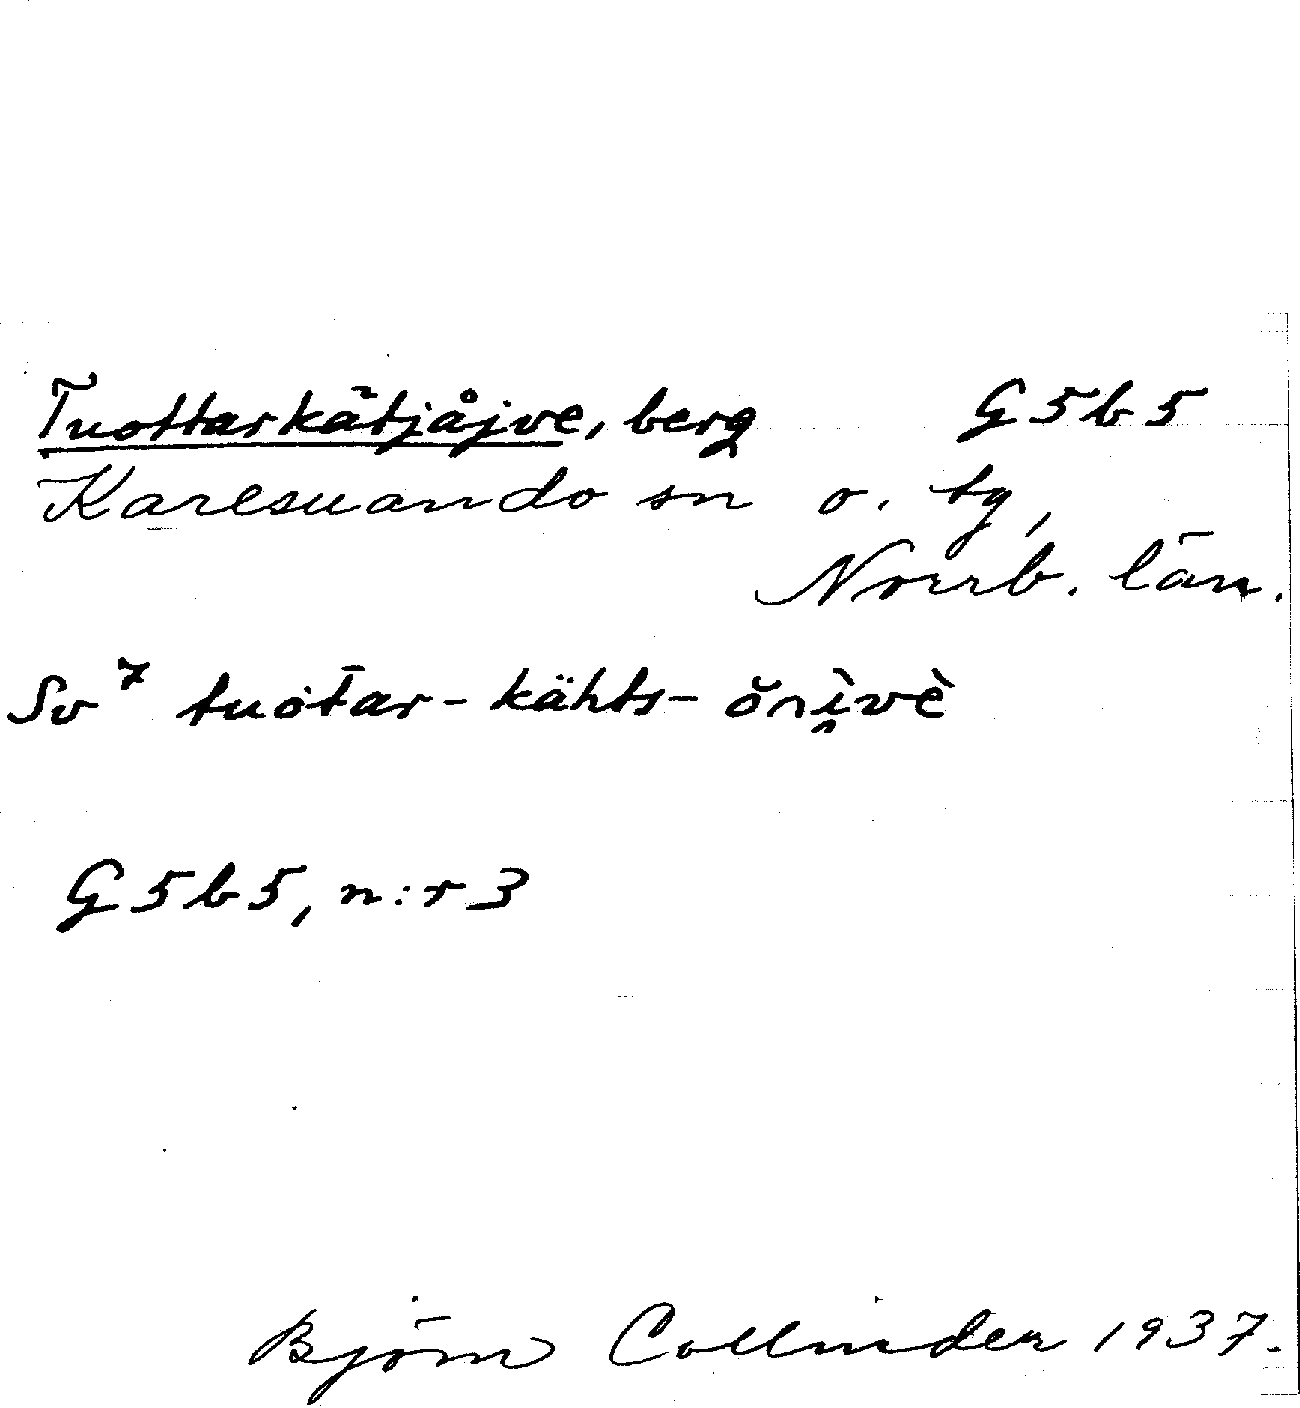 Tuottarkätjåjve, berg G5b5
Karesuando sn o. tg,
Norrb. län.
Sv 7 tuòt̄ar-kähts-
G5b5, n:r 3
Björn Collinder 1937.